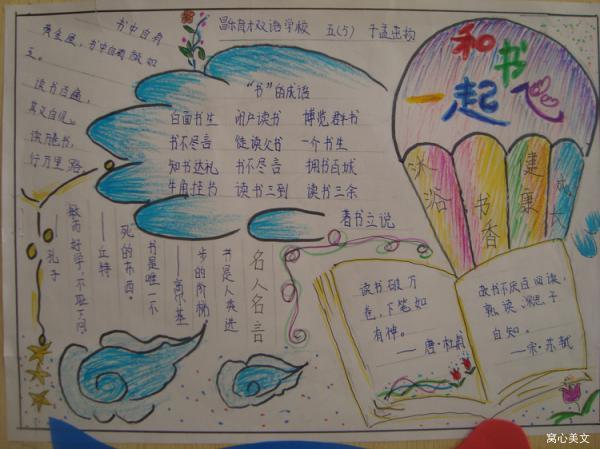 书中自有
黄金屋,书中自有颜如
玉。
读书百遍,
其义自见。
读
行万里路
双语学校 五(5) 于孟
和书
一起飞
沐浴
书香
健康
成
"书"的成语
白面书生 闭户读书 博览群书
书不尽言 徒读父书 一个书生
知书达礼 书不尽言 拥书百城
牛角挂书 读书三到 读书三余
著书立说
名人名言
书是人类进
步的阶梯
——高尔基
书是唯一不
死的东西。
——丘特
敏而好学,不耻下问
——孔子
读书破万
卷,下笔如
有神。
——唐·杜甫
故书不厌百回读,
熟读 思子
自知。
——宋·苏轼
窝心美文